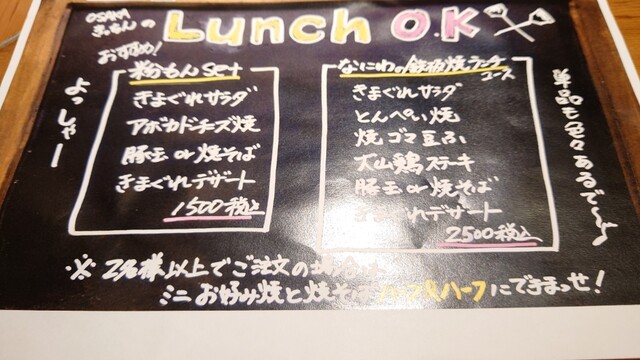 OSAKA
きっちんの
おすすめ!
Lunch O.K
よっしゃー
粉もんset
きまぐれサラダ
アボカドチーズ焼
豚玉 or 焼そば
きまぐれデザート
1500税込
なにわの鉄板焼ランチ
コース
きまぐれサラダ
とんぺい焼
焼ゴマ豆ふ
大山鶏ステーキ
豚玉 or 焼そば
きまぐれデザート
2500税込
単品も色々あるで〜♪
※ 2名様以上でご注文の場合は
ミニお好み焼と焼そばハーフ&ハーフにできまっせ!